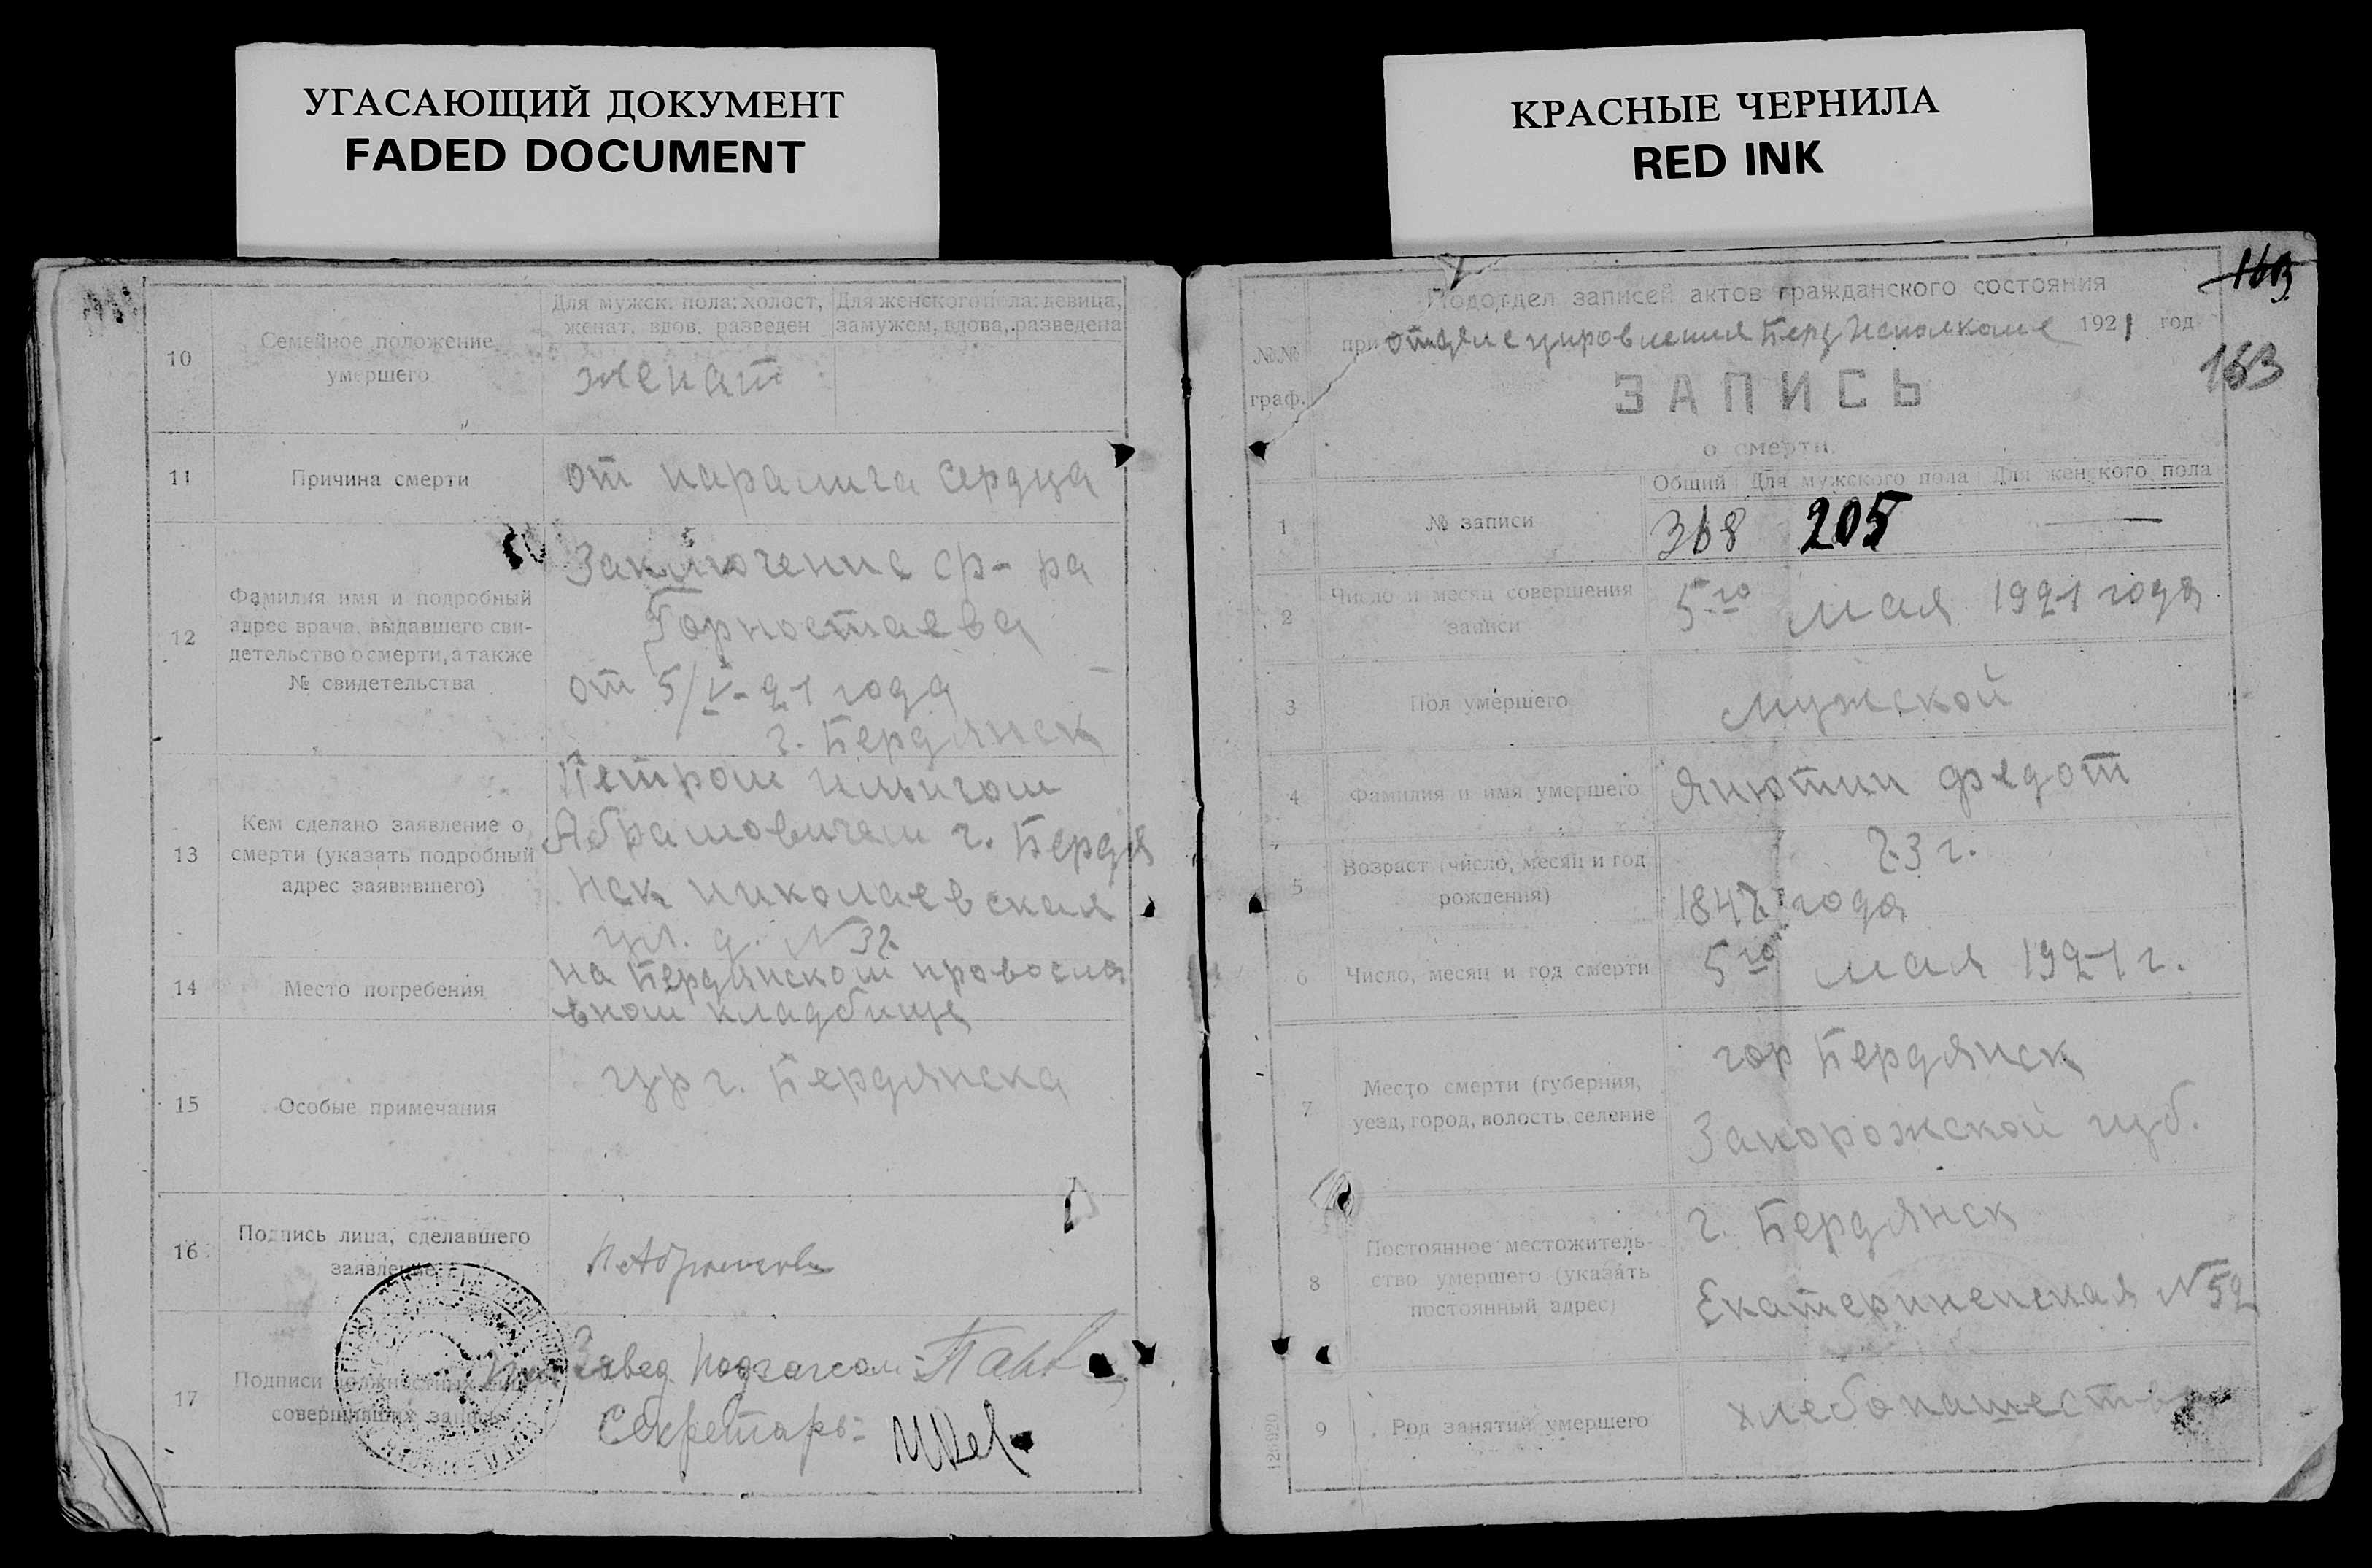 УГАСАЮЩИЙ ДОКУМЕНТ
FADED DOCUMENT
10
Семейное положение
умершего
Для мужск. пола: холост,
женат, вдов. разведен
Для женского пола: девица,
замужем, вдова, разведена
женат
11
Причина смерти
от паралича сердца
12
Фамилия имя и подробный
адрес врача, выдавшего сви-
детельство о смерти, а также
№ свидетельства
Заключение
Горностаева
от 5/V-21 года
г. Бердянск
13
Кем сделано заявление о
смерти (указать подробный
адрес заявившего)
Петром Ильичом
Абрамовичем г. Бердя
нск николаевская
ул. д. N 32
14
Место погребения
на Бердянском провосла
вном кладбище
15
Особые примечания
гр г. Бердянска
16
Подпись лица, сделавшего
заявление
17
Подписи должностных лиц
совершивших запись
Завед. Подзагсом
Секретарь:
КРАСНЫЕ ЧЕРНИЛА
RED INK
163
№№
граф.
Подотдел записей актов гражданского состояния
при отделе управления Берд Исполкоме 1921 год
163
ЗАПИСЬ
о смерти.
Общий Для мужского пола Для женского пола
1
№ записи
368 205 —
2
Число и месяц совершения
записи
5го мая 1921 года
3
Пол умершего
мужской
4
Фамилия и имя умершего
Янютин Федот
5
Возраст (число, месяц и год
рождения)
73 г.
1847 года
6
Число, месяц и год смерти
5го мая 1921 г.
7
Место смерти (губерния,
уезд, город, волость, селение
гор Бердянск
Запорожской губ.
8
Постоянное местожитель-
ство умершего (указать
постоянный адрес)
г. Бердянск
N 52
9
Род занятий умершего
хлебопашество